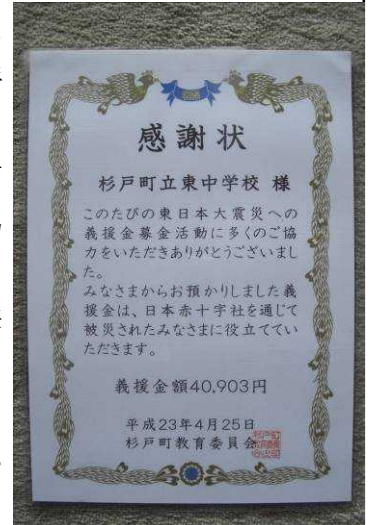 感謝状
杉戸町立東中学校 様
このたびの東日本大震災への
義援金募金活動に多くのご協
力をいただきありがとうございまし
た。
みなさまからお預かりしました義
援金は、日本赤十字社を通じて
被災されたみなさまに役立ててい
ただきます。
義援金額40,903円
平成23年4月25日
杉戸町教育委員会